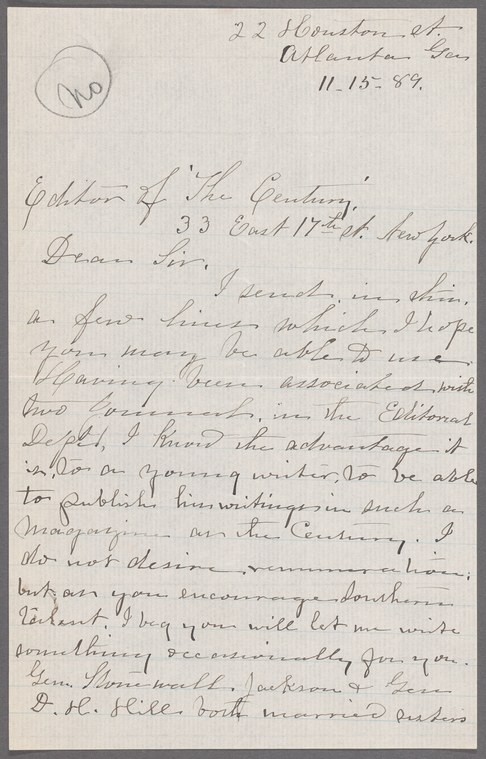 22 Houston st.
Atlanta Ga
11-15-89.
No
Editor of "The Century,"
33 East 17th st. New York.
Dear Sir.
I send, in this,
a few lines which I hope
you may be able to use.
Having been associated, with
two journals, in the Editorial
Dept, I know the advantage it
is, to a young writer, to be able
to publish his writings in such a
Magazine as the Century. I
do not desire remuneration,
but as you encourage Southern
talent, I beg you will let me write
something occasionally for you.
Gen. Stonewall Jackson & Gen
D. H. Hill both married sisters